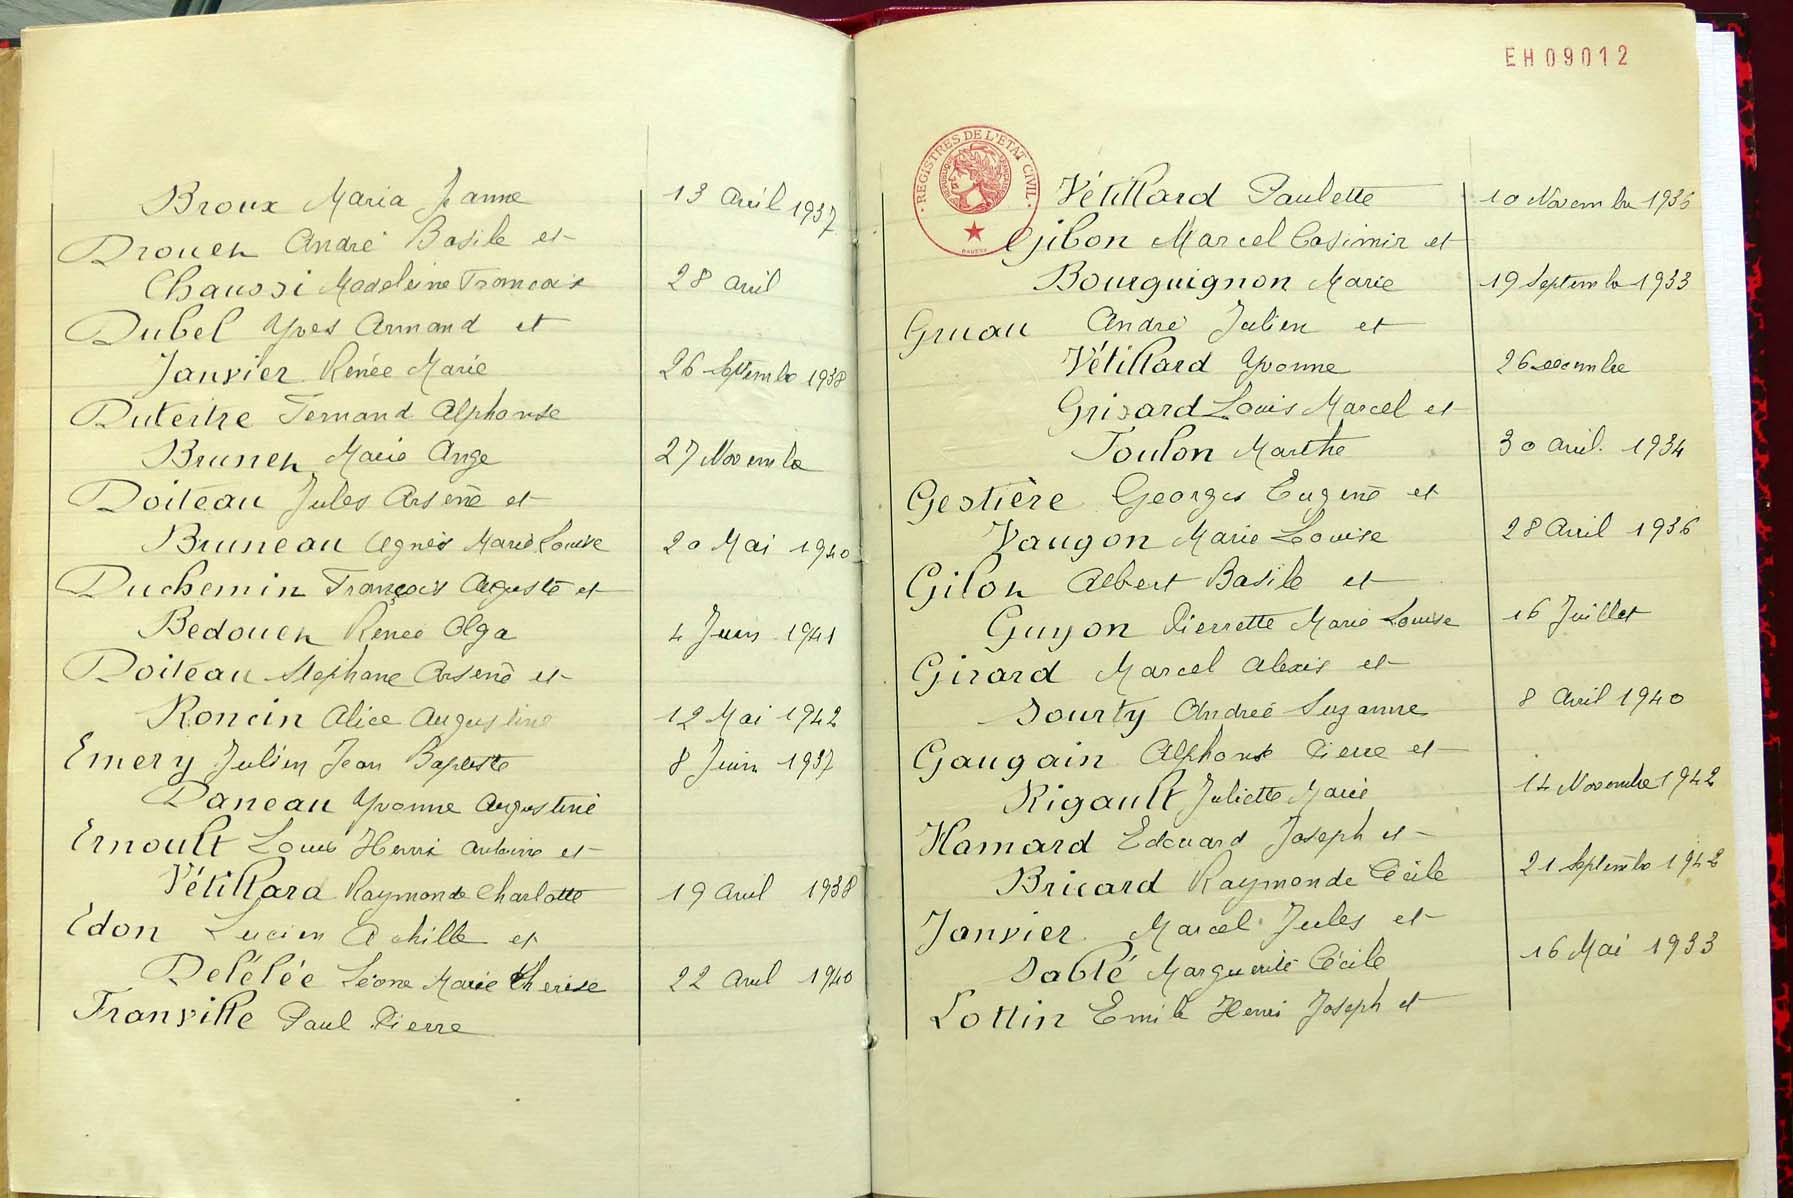 Broux Maria Jeanne 13 Avril 1937
Drouen André Basile et
Chaussi Madeleine François 28 avril
Dubel Yves Armand et
Janvier Renée Marie 26 Septembre 1938
Dutertre Fernand Alphonse
Brunen Marie Ange 27 Novembre
Doiteau Jules Arsène et
Bruneau Agnès Marie Louise 20 Mai 1940
Duchemin François Auguste et
Bedouen Renée Olga 4 Juin 1941
Doiteau Stephane Arsène et
Roncin Alice Augustine 12 Mai 1942
Emery Julien Jean Baptiste 8 Juin 1937
Daneau Yvonne Augustine
Ernoult Louis Henri Antoine et
Vétillard Raymonde Charlotte 19 Avril 1938
Edon Lucien Achille et
Delélée Léone Marie Thérèse 22 Avril 1940
Franville Paul Pierre
EH09012
REGISTRES DE L'ETAT CIVIL
Vétillard Paulette 10 Novembre 1936
Gibon Marcel Casimir et
Bourguignon Marie 19 Septembre 1933
Gruau André Julien et
Vétillard Yvonne 26 Décembre
Grisard Louis Marcel et
Toulon Marthe 30 Avril. 1934
Gestière Georges Eugène et
Vaugon Marie Louise 28 Avril 1936
Gilon Albert Basile et
Guyon Pierrette Marie Louise 16 Juillet
Girard Marcel Alexis et
Sourty Andrée Suzanne 8 Avril 1940
Gaugain Alphonse Pierre et
Rigault Juliette Marie 14 Novembre 1942
Hamard Edouard Joseph et
Bricard Raymonde Cécile 21 Septembre 1942
Janvier Marcel Jules et
Sablé Marguerite Cécile 16 Mai 1933
Lottin Emile Henri Joseph et